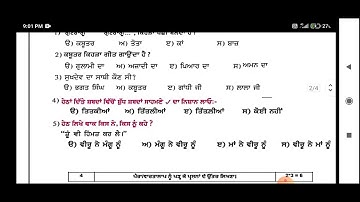 9:01 PM
27
ੳ) ਕਬੂਤਰ ਅ) ਤੋਤਾ ੲ) ਕਾਂ ਸ) ਬਾਜ਼
2) ਕਬੂਤਰ ਕਿਹੜਾ ਗੀਤ ਗਾਉਂਦਾ ਹੈ ?
ੳ) ਗੁਲਾਮੀ ਦਾ ਅ) ਅਜ਼ਾਦੀ ਦਾ ੲ) ਪਿਆਰ ਦਾ ਸ) ਅਮਨ ਦਾ
3) ਸੁਖਦੇਵ ਦਾ ਸਾਥੀ ਕੌਣ ਸੀ ?
ੳ) ਭਗਤ ਸਿੰਘ ਅ) ਕਬੂਤਰ ੲ) ਗਾਂਧੀ ਜੀ ਸ) ਲਾਲਾ ਜੀ
2/4
4) ਹੇਠਾਂ ਦਿੱਤੇ ਸ਼ਬਦਾਂ ਵਿੱਚੋਂ ਸ਼ੁੱਧ ਸ਼ਬਦਾਂ ਸਾਹਮਣੇ ✓ ਦਾ ਨਿਸ਼ਾਨ ਲਾਓ:-
ੳ) ਤਿਤਕੀਆਂ ਅ) ਤਿੱਤਲੀਆਂ ੲ) ਤਿੱਤਲੀਆਂ ਸ) ਕੋਈ ਨਹੀਂ
5) ਹੇਠ ਲਿਖੇ ਵਾਕ ਕਿਸ ਨੇ, ਕਿਸ ਨੂੰ ਕਹੇ ?
"ਤੂੰ ਵੀ ਹਿੰਮਤ ਕਰ ਲੈ।"
ੳ) ਵੀਰੂ ਨੇ ਮੰਗੂ ਨੂੰ ਅ) ਮੰਗੂ ਨੇ ਵੀਰੂ ਨੂੰ ੲ) ਮਾਂ ਨੇ ਵੀਰੂ ਨੂੰ ਸ) ਵੀਰੂ ਨੇ ਮਾਂ ਨੂੰ
4 ਪੈਰਾ/ਵਾਰਤਾਲਾਪ ਨੂੰ ਪੜ੍ਹ ਕੇ ਪ੍ਰਸ਼ਨਾਂ ਦੇ ਉੱਤਰ ਲਿਖਣਾ। 2*3 = 6